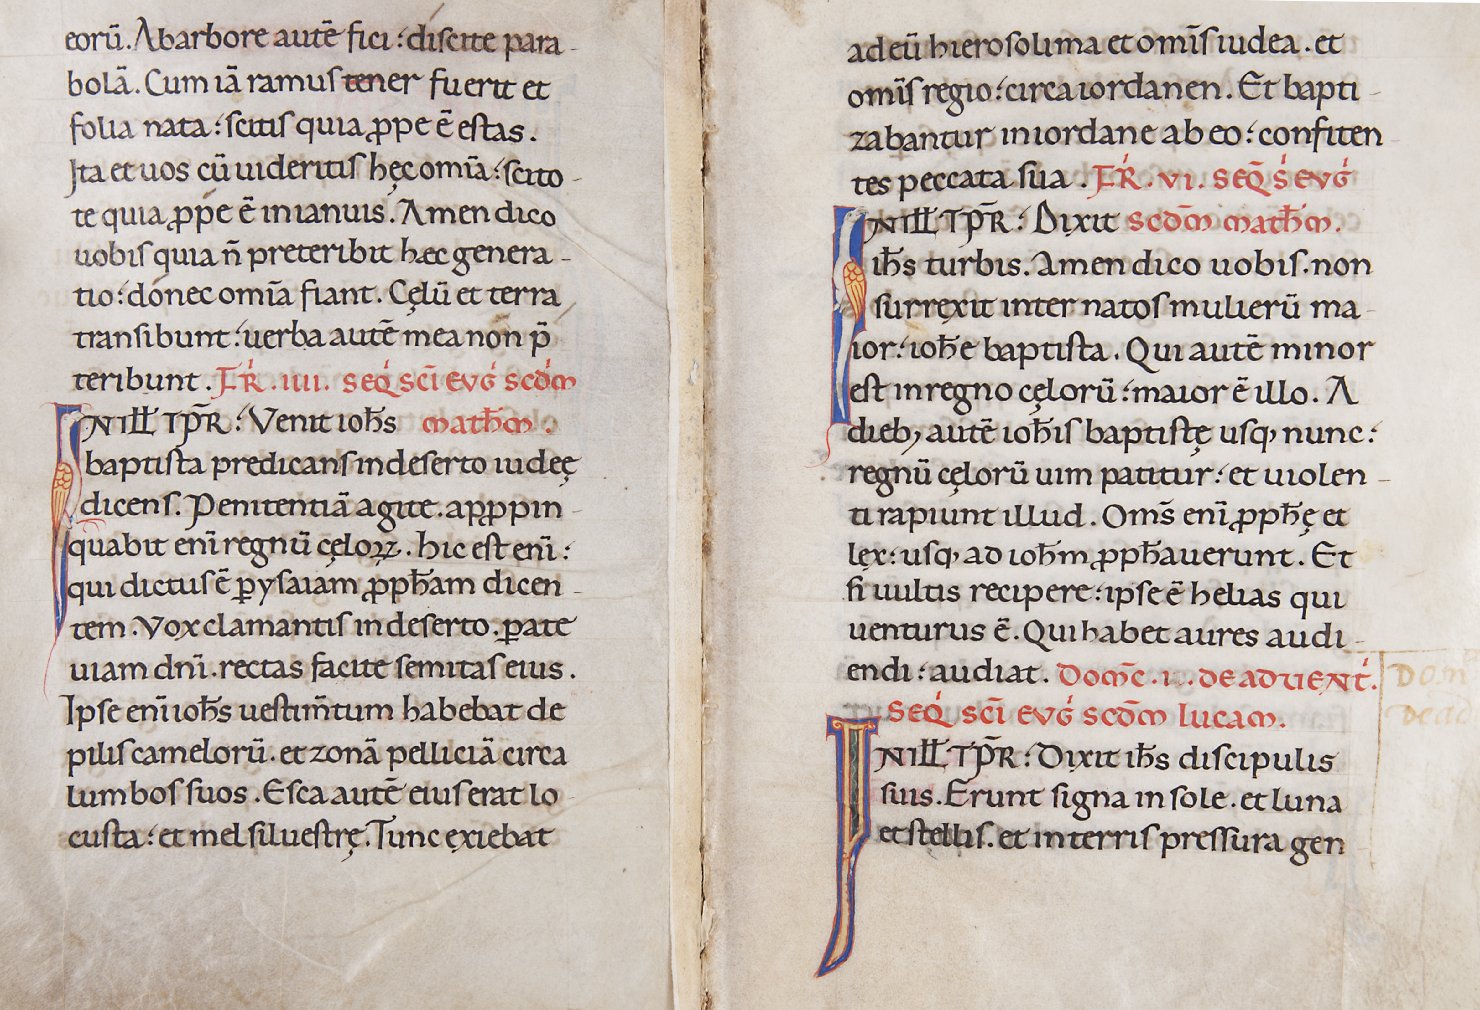 eorū. Abarbore autē fici: discite para-
bolā. Cum iā ramus tener fuerit et
folia nata: scitis quia ꝓpe ē estas.
Ita et uos cū uideritis hęc omīa: scito-
te quia ꝓpe ē in ianuis. Amen dico
uobis quia n̄ preteribit hæc genera-
tio: donec omīa fiant. Cęlū et terra
transibunt: uerba autē mea non p̄
teribunt. FR̄. IIII. SEQ̄ SCĪ EVḠ SCDM̄
INILL̄ TP̄R: Venit ioħs MATĦM.
baptista predicans in deserto iudeę
dicens. Penitentiā agite. apꝓpin-
quabit enī regnū cęloꝝ. hic est enī:
qui dictus ē ꝑ ysaiam ꝓpħam dicen-
tem. Vox clamantis in deserto. ꝑate
uiam dnī. rectas facite semitas eius.
Ipse enī ioħs uestim̄tum habebat de
pilis camelorū. et zonā pelliciā circa
lumbos suos. Esca autē eius erat lo-
custa: et mel siluestrę. Tunc exiebat
ad eū hierosolima et omīs iudea. et
omīs regio: circa iordanen. Et bapti-
zabantur in iordane ab eo: confiten
tes peccata sua. FR̄. VI. SEQ̄S EVḠ
INILL̄ TP̄R: Dixit SCDM̄ MATĦM.
iħs turbis. Amen dico uobis. non
surrexit inter natos mulierū ma-
ior: ioħe baptista. Qui autē minor
est in regno cęlorū: maior ē illo. A
dieb; autē ioħis baptistę usq; nunc:
regnū cęlorū uim patitur: et uiolen-
ti rapiunt illud. Oms̄ enī ꝓpħę et
lex: usq; ad ioħm ꝓpħauerunt. Et
si uultis recipere: ipse ē helias qui
uenturus ē. Qui habet aures audi-
endi: audiat. DOM̄C. II. DE ADUENT̄.
SEQ̄ SCĪ EVḠ SCDM̄ LUCAM.
INILL̄ TP̄R: Dixit iħs discipulis
suis. Erunt signa in sole. et luna
et stellis. et in terris pressura gen